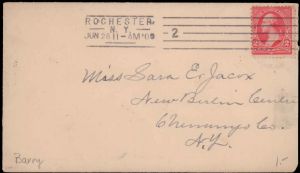 ROCHESTER
N.Y.
JUN 26 11-AM '00
2
Miss Sara E. Jacox
New Berlin Centre
Chenango Co.
N.Y.
Barry
1-